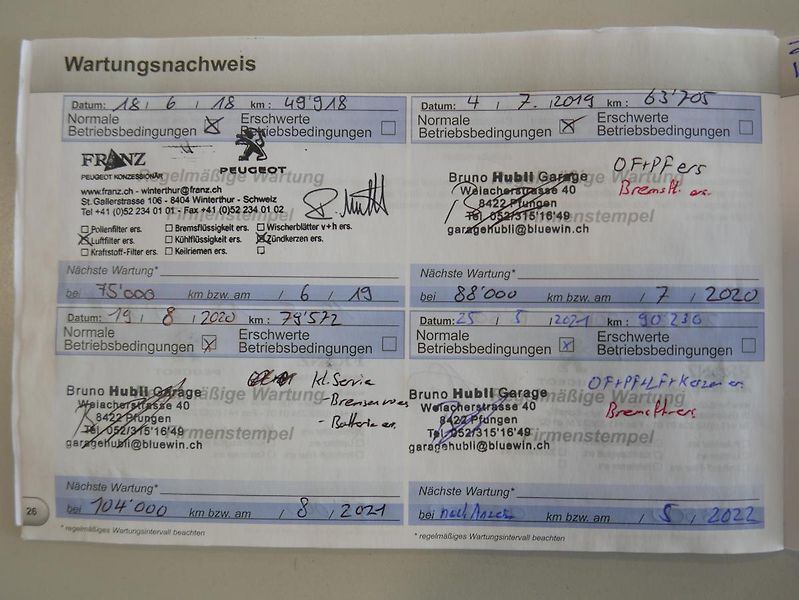 Wartungsnachweis
Datum: 18 / 6 / 18 km: 49'918
Normale Betriebsbedingungen ☒ Erschwerte Betriebsbedingungen ☐
FRANZ
PEUGEOT KONZESSIONÄR
PEUGEOT
regelmäßige Wartung
www.franz.ch - winterthur@franz.ch
St. Gallerstrasse 106 - 8404 Winterthur - Schweiz
Tel +41 (0)52 234 01 01 - Fax +41 (0)52 234 01 02
Firmenstempel
☐ Pollenfilter ers. ☐ Bremsflüssigkeit ers. ☐ Wischerblätter v+h ers.
☒ Luftfilter ers. ☐ Kühlflüssigkeit ers. ☒ Zündkerzen ers.
☐ Kraftstoff-Filter ers. ☐ Keilriemen ers. ☐
Nächste Wartung*
bei 75'000 km bzw. am / 6 / 19
Datum: 4 / 7. / 2019 km: 63'705
Normale Betriebsbedingungen ☒ Erschwerte Betriebsbedingungen ☐
OF+PF ers
Bruno Hubli Garage
regelmäßige Wartung
Weiacherstrasse 40
8422 Pfungen
Tel. 052/315'16'49
Firmenstempel
garagehubli@bluewin.ch
Bremsfl. ers.
Nächste Wartung*
bei 88'000 km bzw. am / 7 / 2020
Datum: 19 / 8 / 2020 km: 79'572
Normale Betriebsbedingungen ☒ Erschwerte Betriebsbedingungen ☐
Bruno Hubli Garage
regelmäßige Wartung
Weiacherstrasse 40
8422 Pfungen
Tel. 052/315'16'49
Firmenstempel
garagehubli@bluewin.ch
kl. Service
- Batterie ers.
Nächste Wartung*
bei 104'000 km bzw. am / 8 / 2021
Datum: 25 / 5 / 2021 km: 90'230
Normale Betriebsbedingungen ☒ Erschwerte Betriebsbedingungen ☐
OF+PF+LF+Kerzen ers.
Bruno Hubli Garage
regelmäßige Wartung
Weiacherstrasse 40
8422 Pfungen
Tel. 052/315'16'49
Firmenstempel
garagehubli@bluewin.ch
Bremsfl. ers.
Nächste Wartung*
bei nach Anzeige km bzw. am / 5 / 2022
26
* regelmäßiges Wartungsintervall beachten
* regelmäßiges Wartungsintervall beachten